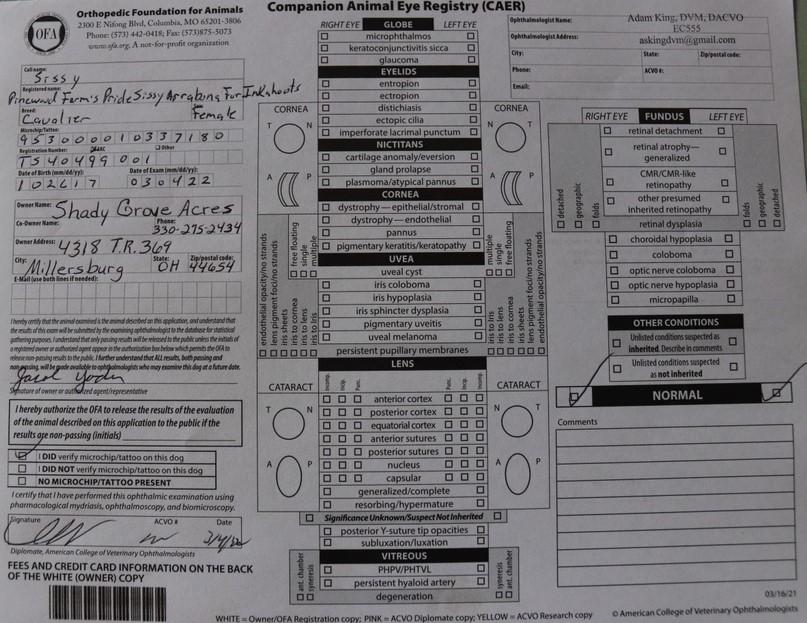 Orthopedic Foundation for Animals
2300 E Nifong Blvd, Columbia, MO 65201-3806
Phone: (573) 442-0418; Fax: (573)875-5073
www.ofa.org, A not-for-profit organization
OFA
Call name:
Sissy
Registered name:
Pinewood Farm's Pride Sissy Arrabing For Inkahoots
Breed:
Cavalier
Sex:
Female
Microchip/Tattoo:
953000010337180
Registration Number: AKC Other
TS40499001
Date of Birth (mm/dd/yy): Date of Exam (mm/dd/yy):
102617 030422
Owner Name: Shady Grove Acres
Co-Owner Name: Phone: 330-275-2434
Owner Address: 4318 T.R. 369
City: State: Zip/postal code:
Millersburg OH 44654
E-Mail (use both lines if needed):
I hereby certify that the animal examined is the animal described on this application, and understand that
the results of this exam will be submitted by the examining ophthalmologist to the database for statistical
gathering purposes. I understand that only passing results will be released to the public unless the initials of
a registered owner or authorized agent appear in the authorization box below which permits the OFA to
release non-passing results to the public. I further understand that ALL results, both passing and
non-passing, will be made available to ophthalmologists who may examine this dog at a future date.
Jacob Yoder
Signature of owner or authorized agent/representative
I hereby authorize the OFA to release the results of the evaluation
of the animal described on this application to the public if the
results are non-passing (initials)
I DID verify microchip/tattoo on this dog
I DID NOT verify microchip/tattoo on this dog
NO MICROCHIP/TATTOO PRESENT
I certify that I have performed this ophthalmic examination using
pharmacological mydriasis, ophthalmoscopy, and biomicroscopy.
Signature ACVO # Date
3/4/22
Diplomate, American College of Veterinary Ophthalmologists
FEES AND CREDIT CARD INFORMATION ON THE BACK
OF THE WHITE (OWNER) COPY
Companion Animal Eye Registry (CAER)
RIGHT EYE GLOBE LEFT EYE
microphthalmos
keratoconjunctivitis sicca
glaucoma
EYELIDS
entropion
ectropion
distichiasis
ectopic cilia
imperforate lacrimal punctum
NICTITANS
cartilage anomaly/eversion
gland prolapse
plasmoma/atypical pannus
CORNEA
dystrophy—epithelial/stromal
dystrophy—endothelial
pannus
pigmentary keratitis/keratopathy
UVEA
uveal cyst
iris coloboma
iris hypoplasia
iris sphincter dysplasia
pigmentary uveitis
uveal melanoma
persistent pupillary membranes
LENS
Incomp. Incip. Punc. Punc. Incip. Incomp.
anterior cortex
posterior cortex
equatorial cortex
anterior sutures
posterior sutures
nucleus
capsular
generalized/complete
resorbing/hypermature
Significance Unknown/Suspect Not Inherited
posterior Y-suture tip opacities
subluxation/luxation
VITREOUS
PHPV/PHTVL
persistent hyaloid artery
degeneration
CORNEA
T N
A P
free floating
single
multiple
endothelial opacity/no strands
lens pigment foci/no strands
iris sheets
iris to cornea
iris to lens
iris to Iris
CATARACT
T N
A P
ant. chamber
syneresis
CORNEA
N T
A P
multiple
single
free floating
iris to Iris
iris to lens
iris to cornea
iris sheets
lens pigment foci/no strands
endothelial opacity/no strands
CATARACT
N T
A P
syneresis
ant. chamber
Ophthalmologist Name: Adam King, DVM, DACVO
EC555
Ophthalmologist Address: askingdvm@gmail.com
City: State: Zip/postal code:
Phone: ACVO #:
Email:
RIGHT EYE FUNDUS LEFT EYE
retinal detachment
retinal atrophy—
generalized
CMR/CMR-like
retinopathy
other presumed
inherited retinopathy
retinal dysplasia
detached
geographic
folds
folds
geographic
detached
choroidal hypoplasia
coloboma
optic nerve coloboma
optic nerve hypoplasia
micropapilla
OTHER CONDITIONS
Unlisted conditions suspected as
inherited. Describe in comments
Unlisted conditions suspected
as not inherited
NORMAL
Comments
03/16/21
WHITE = Owner/OFA Registration copy; PINK = ACVO Diplomate copy; YELLOW = ACVO Research copy
© American College of Veterinary Ophthalmologists